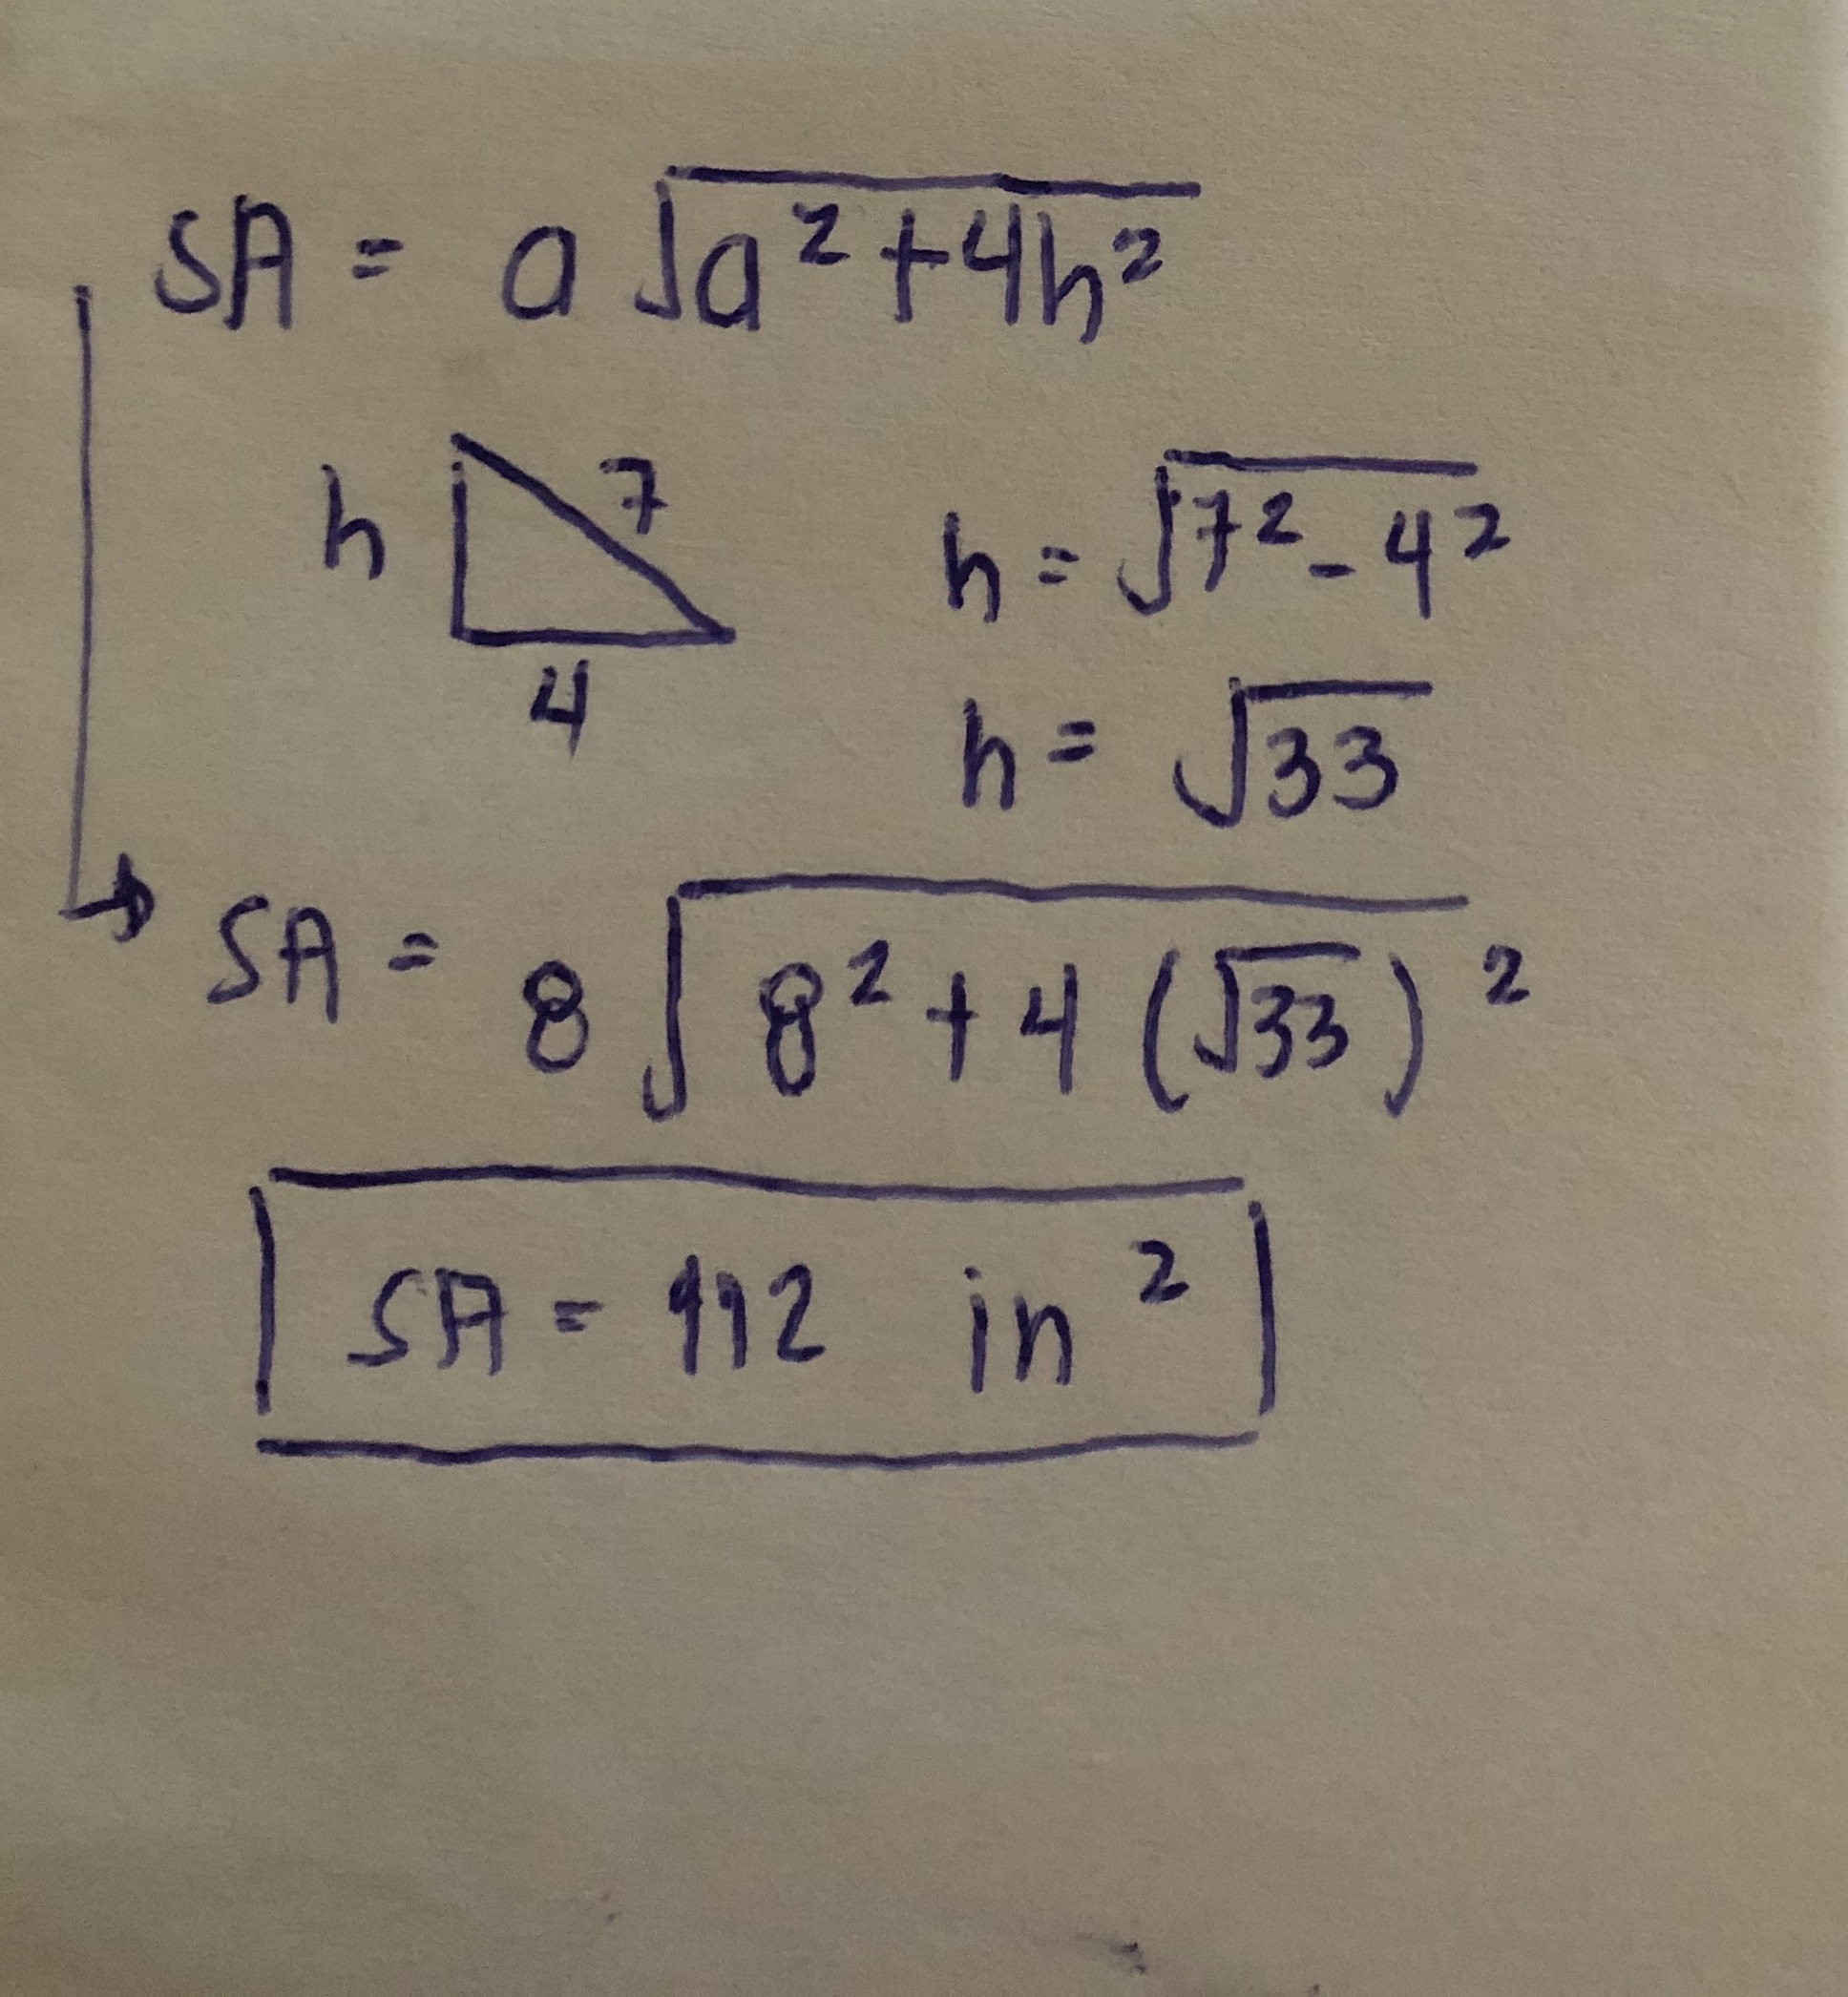 SA = a √(a² + 4h²)
h 7 h = √(7² - 4²)
4
h = √33
SA = 8 √(8² + 4 (√33)²)
SA = 112 in²